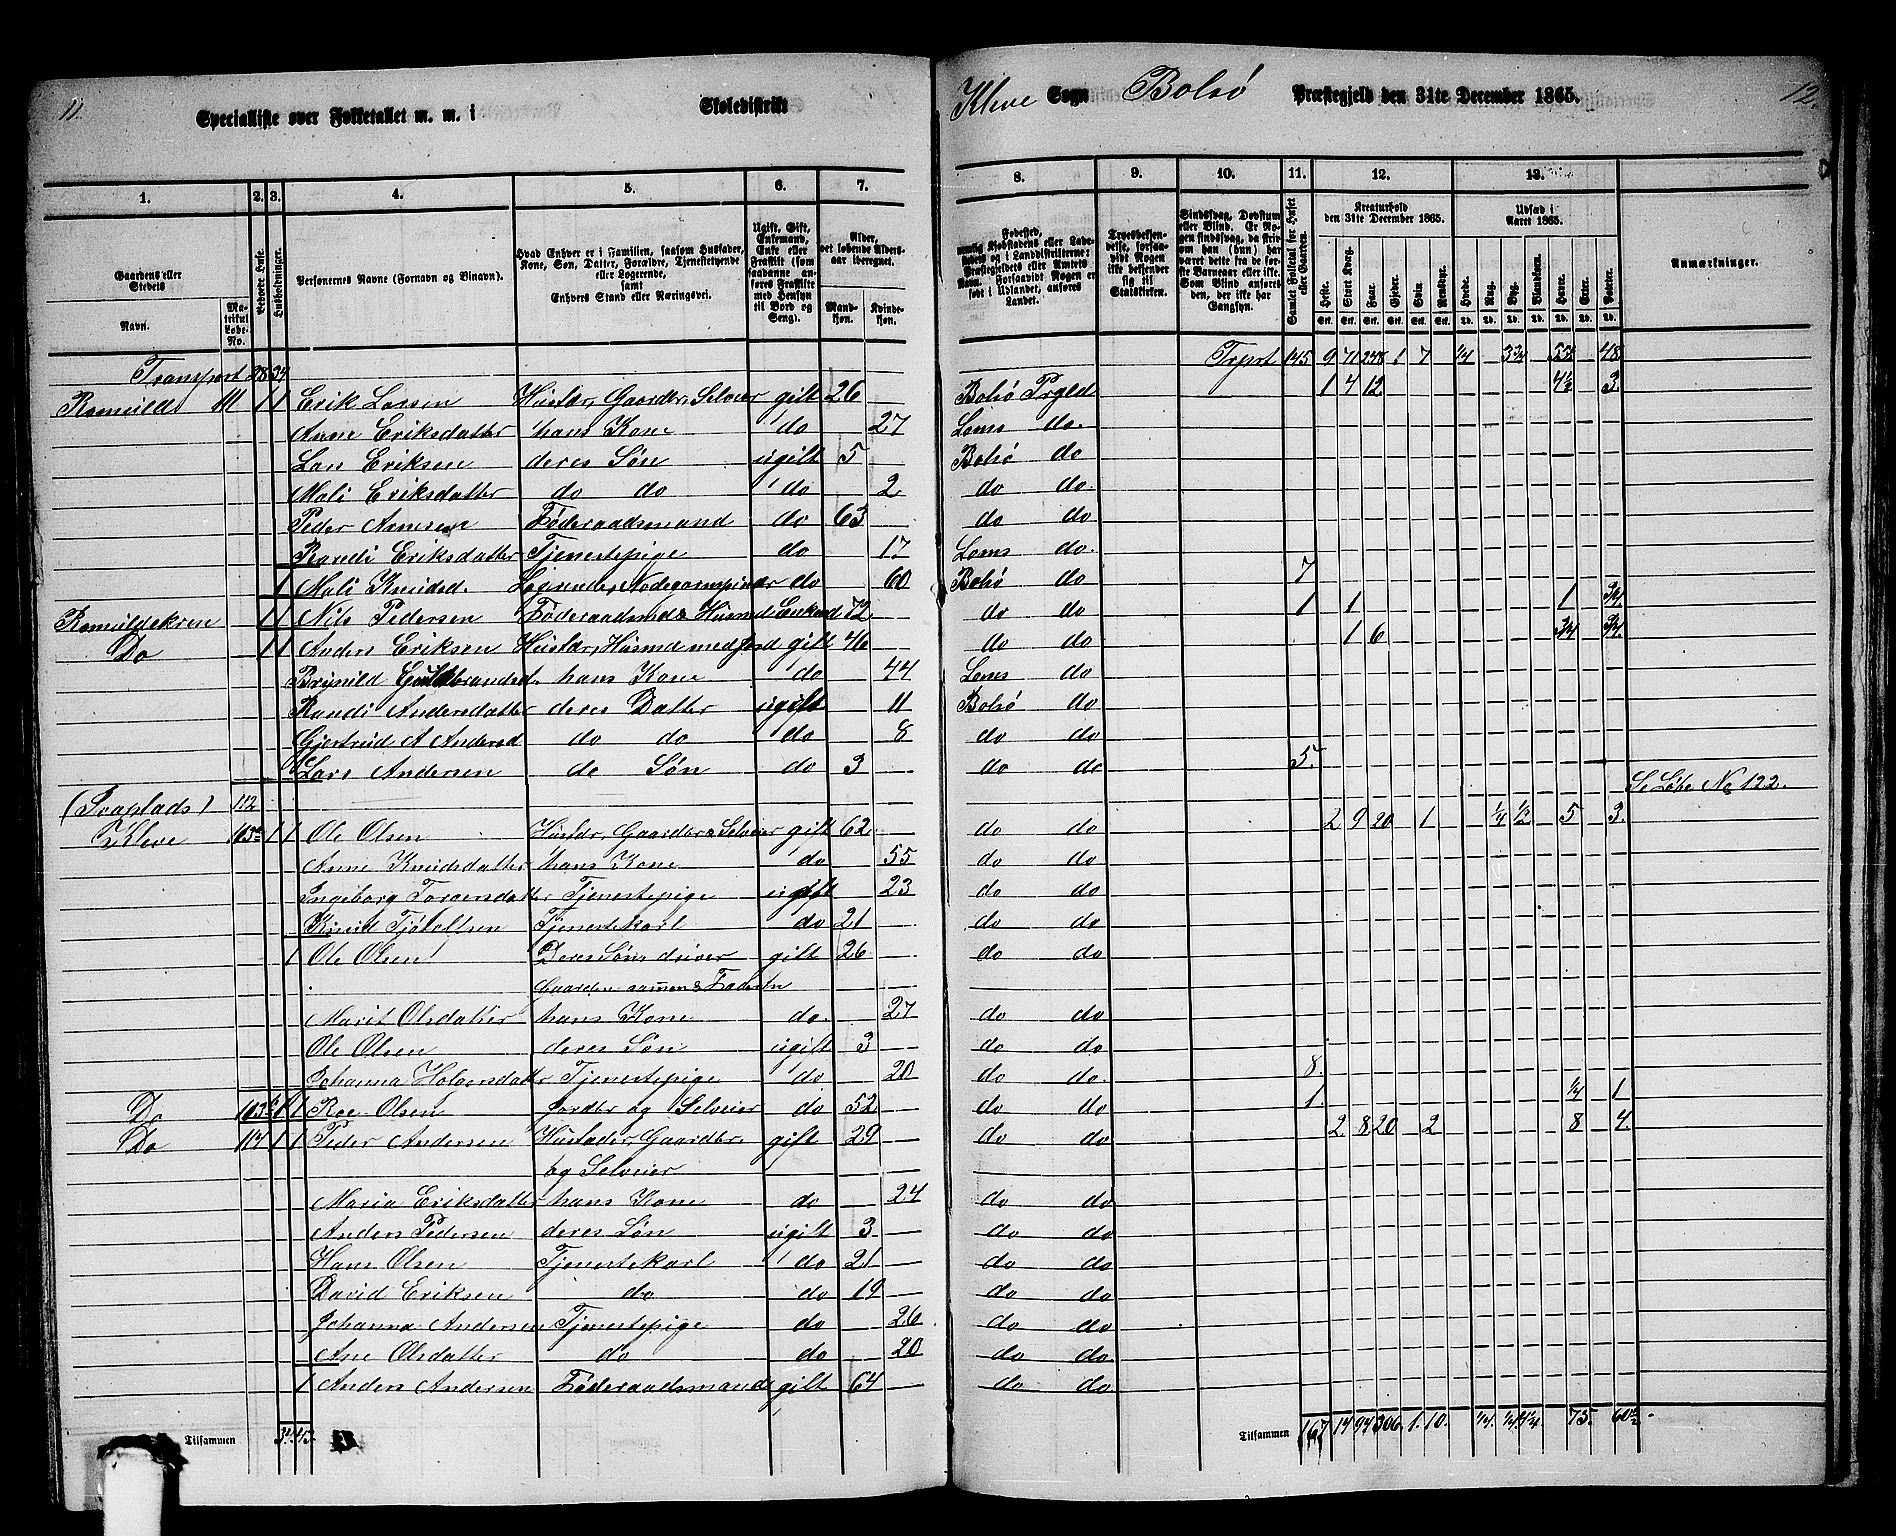 11. Specialliste over Folketallet m. m. i Skoledistrikt
Kleve Sogn Bolsø Præstegjeld den 31te December 1865. 12.
1. 2. 3. 4. 5. 6. 7.
8. 9. 10. 11. 12. 13.
Gaardens eller Stedets
Navn.
Matrikul Løbe-No.
Beboede Huse.
Husholdninger.
Personernes Navne (Fornavn og Binavn).
Hvad Enhver er i Familien, saasom Husfader, Kone, Søn, Datter, Forældre, Tjenestetyende eller Logerende, samt Enhvers Stand eller Næringsvei.
Ugift, Gift, Enkemand, Enke eller Fraskilt (som saadanne anføres Fraskilte med Hensyn til Bord og Seng).
Alder, det løbende Aldersaar iberegnet.
Mandkjøn. Kvindekjøn.
Fødested, nemlig Kjøbstadens eller Ladestedets og i Landdistrikterne: Præstegjeldets eller Amtets Navn. Forsaavidt Nogen er født i Udlandet, anføres Landet.
Troesbekjendelse, forsaavidt Nogen ikke bekjender sig til Statskirken.
Sindssvag, Døvstum eller Blind. Er Nogen sindssvag, da skriv om han (hun) har været dette fra de første Barneaar eller ikke. Som Blind anføres den, der ikke har Gangsyn.
Samlet Folketal for Huset eller Gaarden.
Kreaturhold den 31te December 1865.
Heste. Stort Kvæg. Faar. Gjeder. Svin. Rensdyr.
Udsæd i Aaret 1865.
Hvede. Rug. Byg. Blandkorn. Havre. Erter. Poteter.
Anmærkninger.
Transport 28 34 Trprt 145 9 71 248 1 7 1/4 48
Romuld 111 1 1 Erik Larsen Husfdr, Gaardbr, Selveier gift 26 Bolsø Prgld 1 4 12 4½ 3
Anne Eriksdatter hans Kone do 27 Loms do.
Lars Eriksen deres Søn ugift 5 Bolsø do
Mali Eriksdatter do do do 2 do do.
Peder Arnesen Føderaadsmand do 63 do do
Randi Eriksdatter Tjenestepige do 17 Loms do.
1 Mali Knudsd. do 60 Bolsø do 7
1 1 Nils Pedersen Enkemd 72 do do 1 1 1 3/4
Do 1 1 Anders Eriksen Husfdr, Husmd med Jord gift 46 do do 1 6 3/4 3/4
Brynild Guldbrandsd. hans Kone do 44 Loms do
Randi Andersdatter deres Datter ugift 11 Bolsø do
Gjertrud A Andersd do do do 8 do do
Lars Andersen do Søn do 3 do do 5.
112 Se Løbe No 122.
Kleve 113a 1 1 Ole Olsen Husfdr, Gaardbr & Selveier gift 62 do do 2 9 20 1 1/4 1/2 5 3.
Anne Knudsdatter hans Kone do 55 do do
Ingeborg Torgersdatter Tjenestepige ugift 23 do do
Knud Tjøtolfsen Tjenestekarl do 21 do do
1 Ole Olsen Deres Søn, driver gift 26 do do
Gaarden sammen & Faderen
Marit Olsdatter hans Kone do. 27 do do
Ole Olsen deres Søn ugift 3 do do
Johanna Holgersdatter Tjenestepige do 20 do do. 8.
Do 113b 1 1 Roe Olsen Jordbr og Selveier do 52 do do 1. 1/4 1
Do 114 1 1 Peder Andersen Husfader, Gaardbr. gift 29 do do 2 8 20 2 8 4.
og Selveier
Maria Eriksdatter hans Kone do 24 do do
Anders Pedersen deres Søn ugift 3 do do
Hans Olsen Tjenestekarl do 21 do do
David Eriksen do do 19 do do
Johanna Andersen Tjenestepige do 26 do do
Ane Olsdatter do do 20 do do.
1 Anders Andersen Føderaadsmand gift 64 do do
Tilsammen 34 43
Tilsammen 167 14 94 306. 1. 10. 1/4. 75. 60½